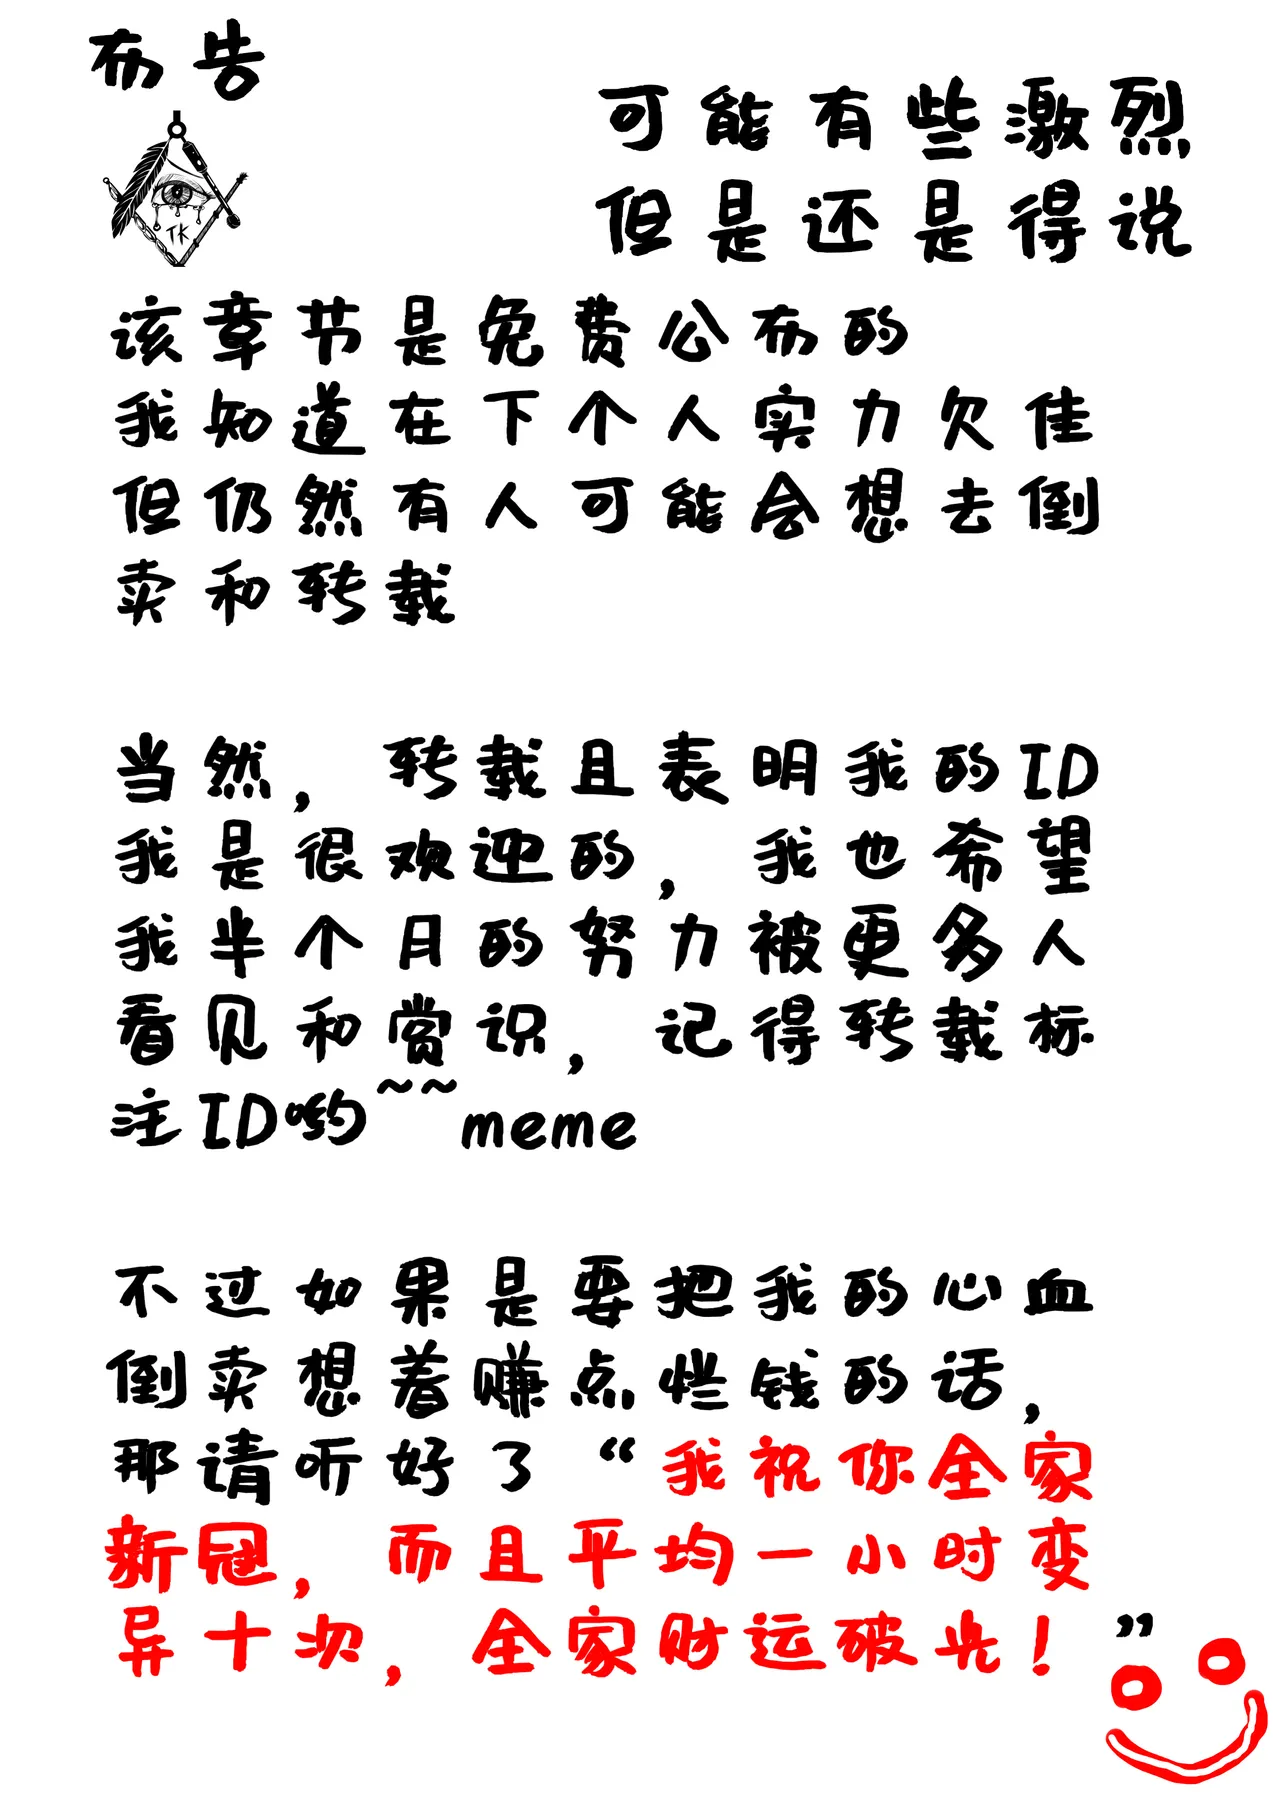 布告
可能有些激烈
但是还是得说
TK
该章节是免费公布的
我知道在下个人实力欠佳
但仍然有人可能会想去倒
卖和转载
当然，转载且表明我的ID
我是很欢迎的，我也希望
我半个月的努力被更多人
看见和赏识，记得转载标
注ID哟~~meme
不过如果是要把我的心血
倒卖想着赚点烂钱的话，
那请听好了“我祝你全家
新冠，而且平均一小时变
异十次，全家财运破光！”